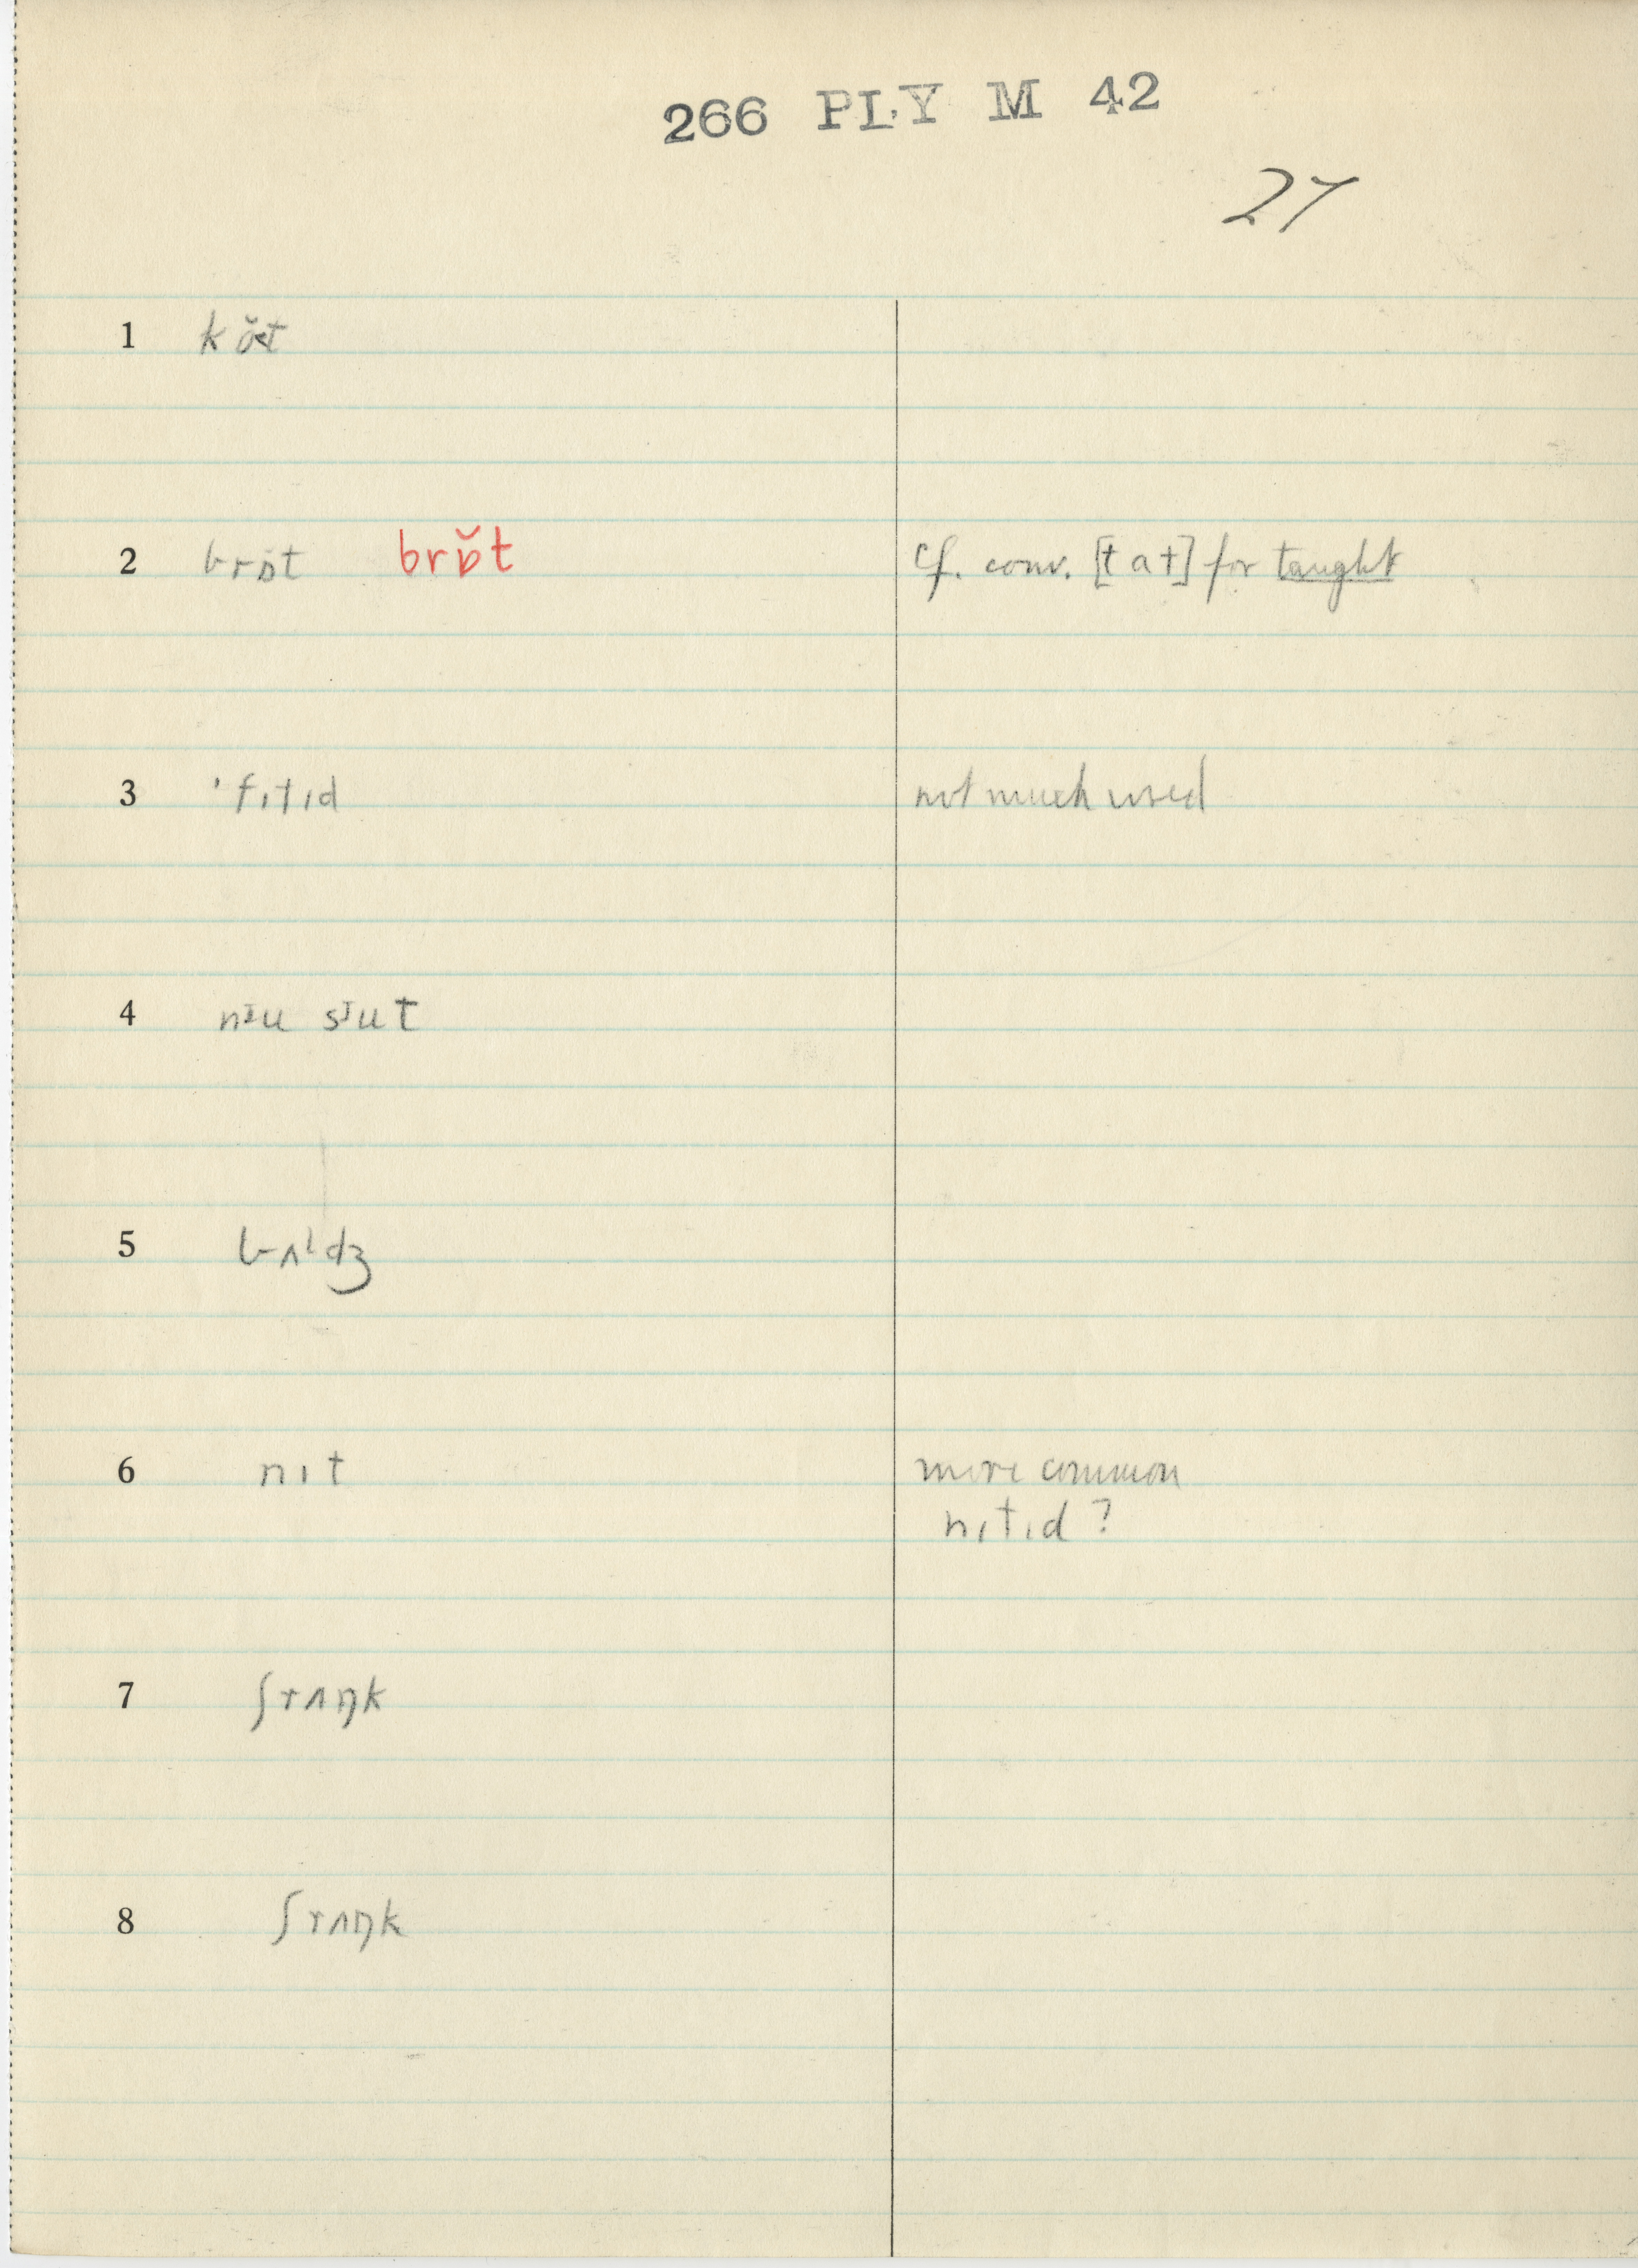 266 PLY M 42
27
1 kŏt
2 brɒ̆t brɒ̆t cf. conv. [tat] for taught
3 'fɪtɪd not much used
4 nɪu sɪut
5 bʌldʒ
6 nɪt more common
nɪtɪd ?
7 ʃrʌŋk
8 ʃrʌŋk